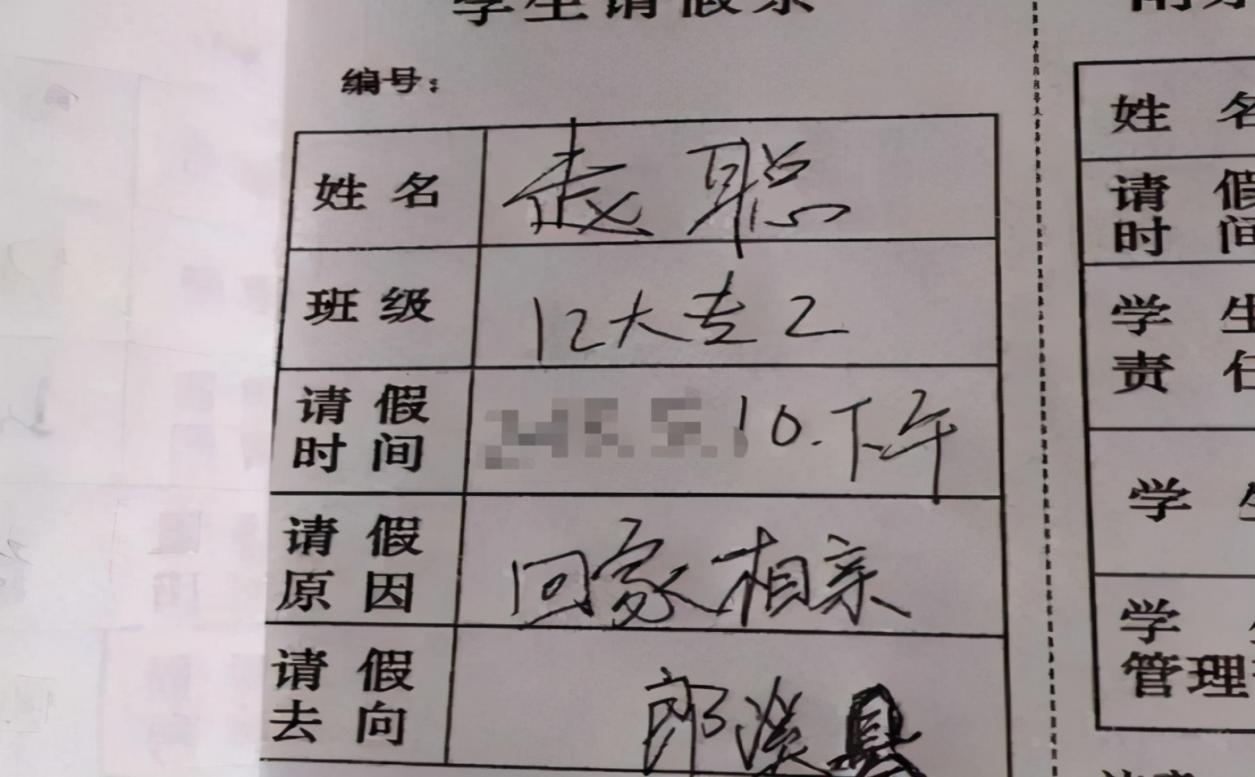 学生请假条
编号：
姓名 赵聪
班级 12大专2
请假时间 10.下午
请假原因 回家相亲
请假去向 郎溪县
姓名
请假时间
学生
责任
学
学
管理